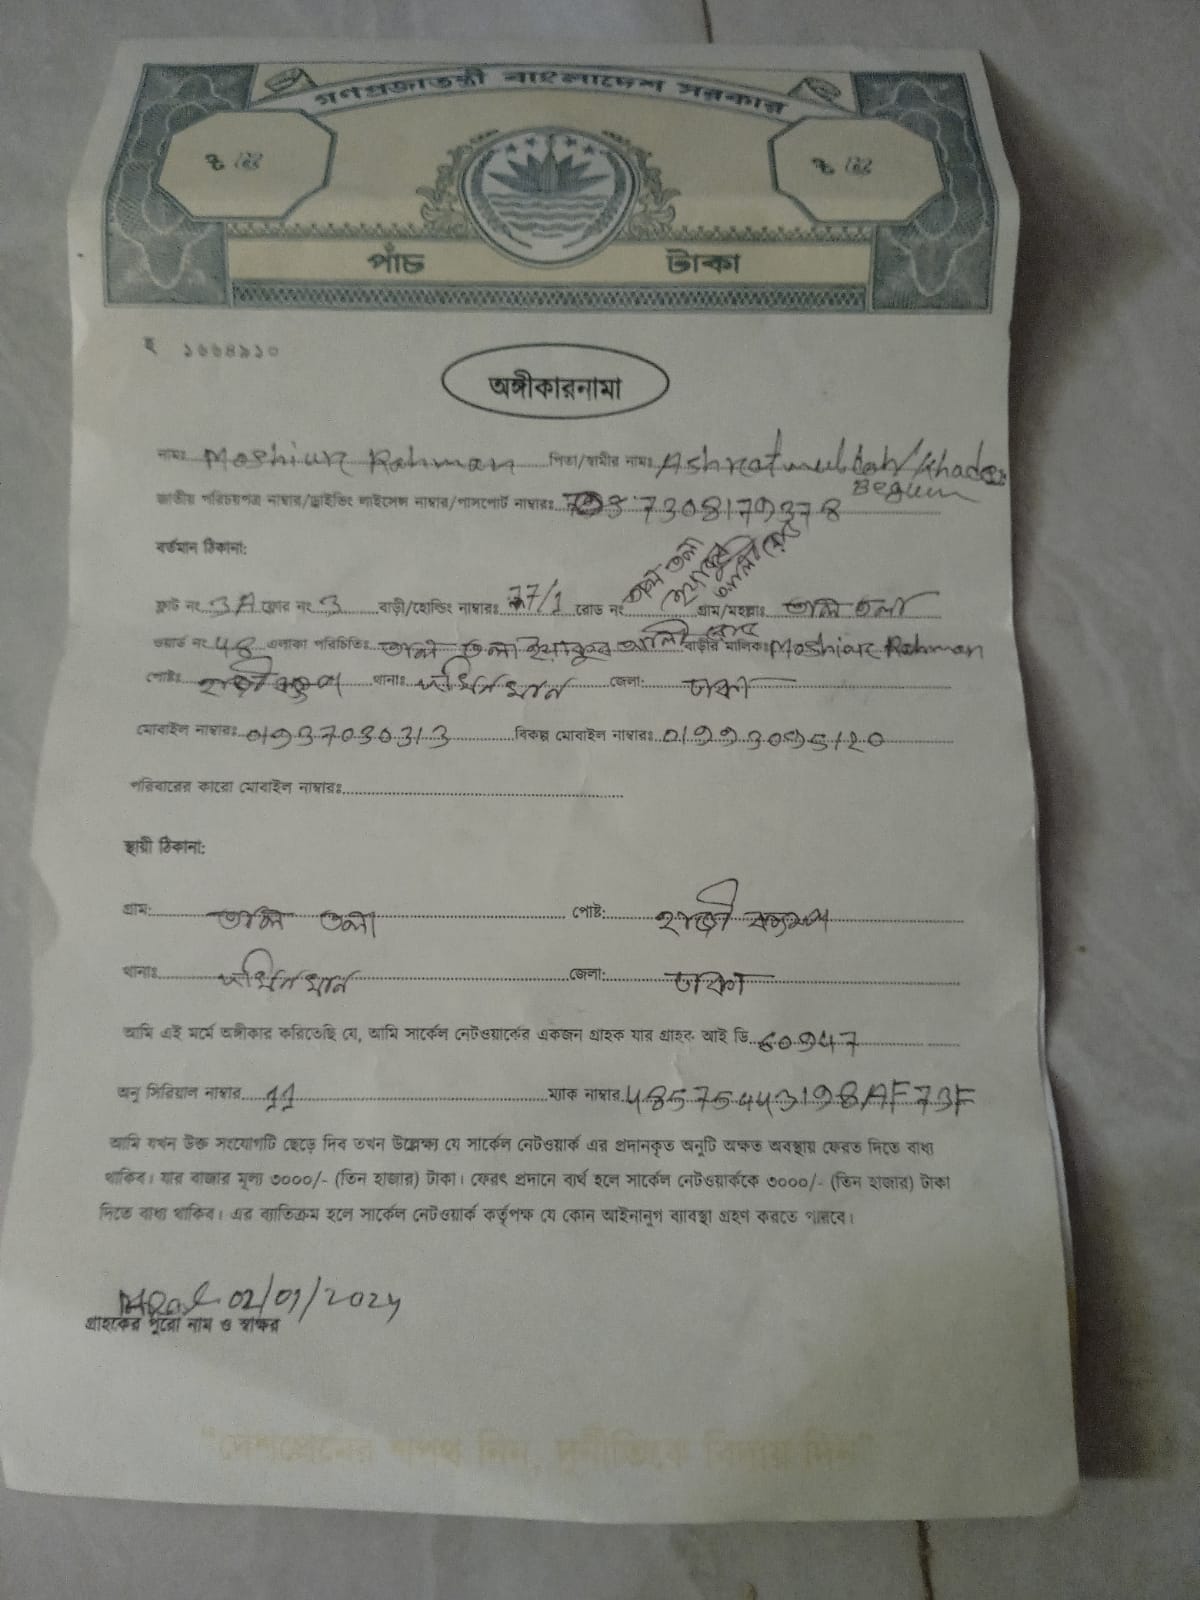 গণপ্রজাতন্ত্রী বাংলাদেশ সরকার
৳ ৫ ৳ ৫
পাঁচ টাকা
ই ১৬৬৪৯১০
অঙ্গীকারনামা
নামঃ Moshiur Rahman পিতা/স্বামীর নামঃ Ashrat / Khade Begum
জাতীয় পরিচয়পত্র নাম্বার/ড্রাইভিং লাইসেন্স নাম্বার/পাসপোর্ট নাম্বারঃ 7308179378
বর্তমান ঠিকানা:
ফ্লাট নং 3A ফ্লোর নং 3 বাড়ী/হোল্ডিং নাম্বারঃ 77/1 রোড নং গ্রাম/মহল্লাঃ তালতলা
ওয়ার্ড নং 48 এলাকা পরিচিতিঃ তাল তলা ইয়াকুব আলী রোড বাড়ীর মালিকঃ Moshiur Rahman
পোষ্টঃ থানাঃ দক্ষিনখান জেলা: ঢাকা
মোবাইল নাম্বারঃ 01937030313 বিকল্প মোবাইল নাম্বারঃ 01993095120
পরিবারের কারো মোবাইল নাম্বারঃ
স্থায়ী ঠিকানা:
গ্রাম: তাল তলা পোষ্ট: হাজী
থানাঃ দক্ষিনখান জেলা: ঢাকা
আমি এই মর্মে অঙ্গীকার করিতেছি যে, আমি সার্কেল নেটওয়ার্কের একজন গ্রাহক যার গ্রাহক আই ডি 60947
অনু সিরিয়াল নাম্বার 11 ম্যাক নাম্বার 48575443198AF73F
আমি যখন উক্ত সংযোগটি ছেড়ে দিব তখন উল্লেখ্য যে সার্কেল নেটওয়ার্ক এর প্রদানকৃত অনুটি অক্ষত অবস্থায় ফেরত দিতে বাধ্য
থাকিব। যার বাজার মূল্য ৩০০০/- (তিন হাজার) টাকা। ফেরৎ প্রদানে ব্যর্থ হলে সার্কেল নেটওয়ার্ককে ৩০০০/- (তিন হাজার) টাকা
দিতে বাধ্য থাকিব। এর ব্যাতিক্রম হলে সার্কেল নেটওয়ার্ক কর্তৃপক্ষ যে কোন আইনানুগ ব্যাবস্থা গ্রহণ করতে পারবে।
02/01/2024
গ্রাহকের পুরো নাম ও স্বাক্ষর
"দেশপ্রেমের শপথ নিন, দুর্নীতিকে বিদায় দিন"